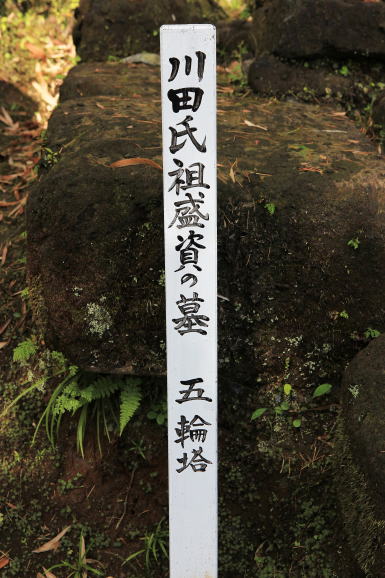 川田氏祖盛資の墓　五輪塔